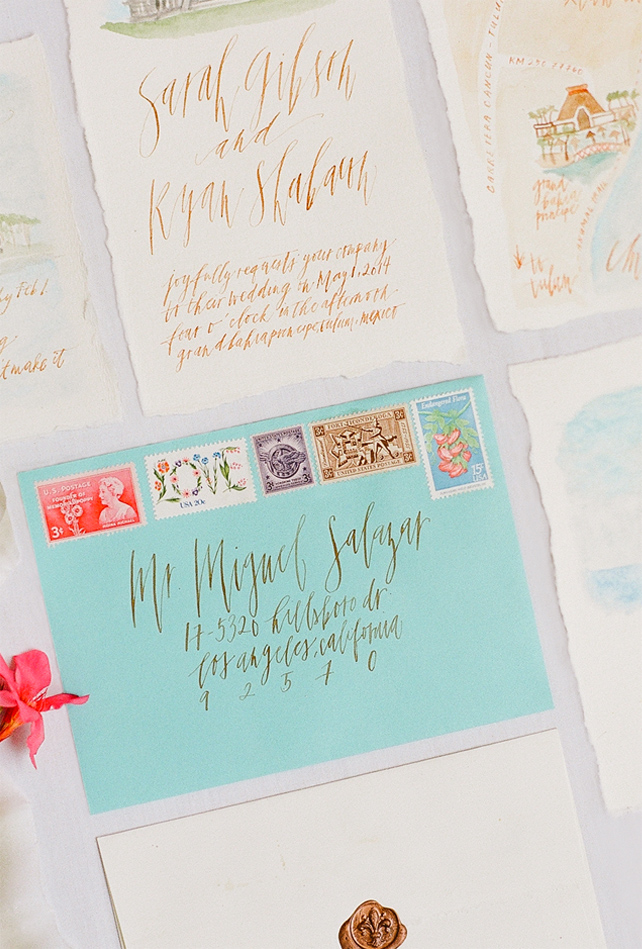 Sarah Gibson
and
Ryan Shabaun
joyfully requests your company
to their wedding in May 1, 2014
four o' clock in the afternoon
grand bahia principe, tulum, mexico
by Feb 1
t make it
CARRETERA CANCUN - TULUM
KM
grand
bahia
principe
tulum
U.S. POSTAGE
FOUNDER OF
MEMORIAL POPPY
3¢
MOINA MICHAEL
LOVE
USA 20c
3¢
3¢
FORT TICONDEROGA
3¢
3¢
UNITED STATES POSTAGE
Endangered Flora
15¢
USA
Mr. Miguel Salazar
17-5320 hillsboro dr.
los angeles, california
9 2 5 7 0